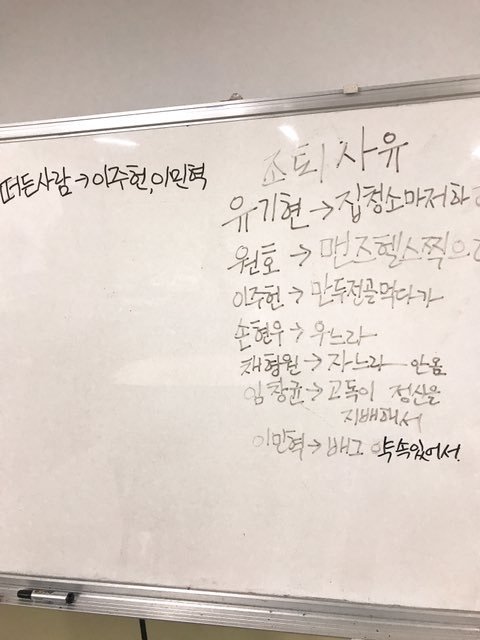 떠든사람→이주헌,이민혁
조퇴사유
유기현→집청소마저하
원호→맨즈헬스찍으
이주헌→만두전골먹다가
손현우→우느라
채형원→자느라 안옴
임창균→고독이 정신을
지배해서
이민혁→배그 약속있어서